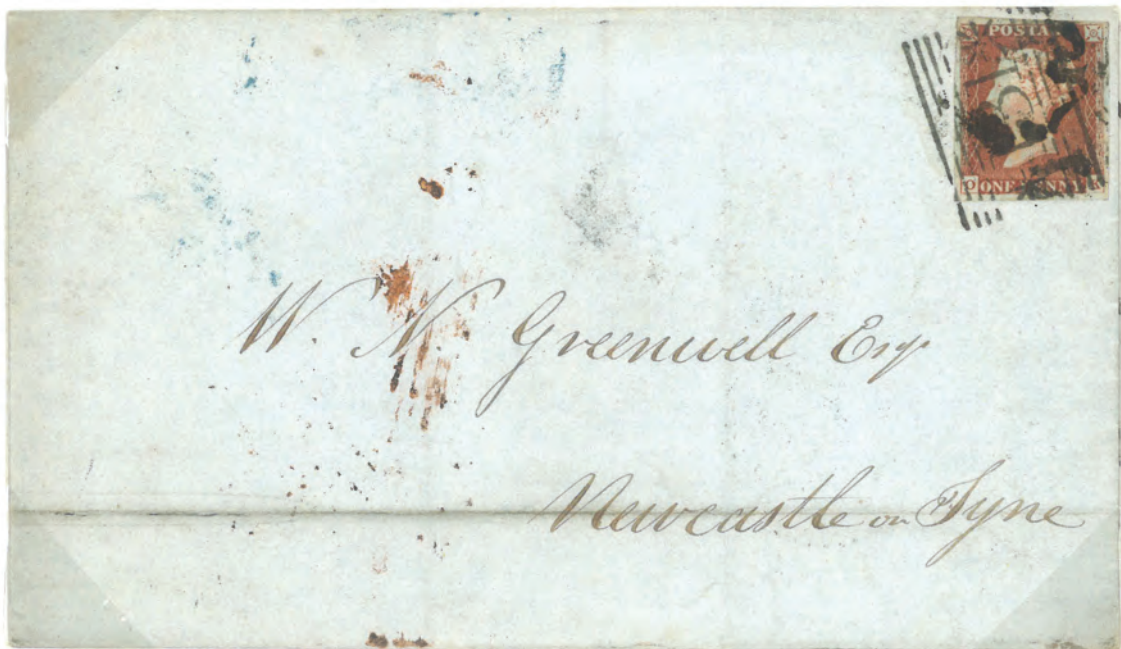 POSTA
ONE PENNY
W. N. Greenwell Esqr
Newcastle on Tyne